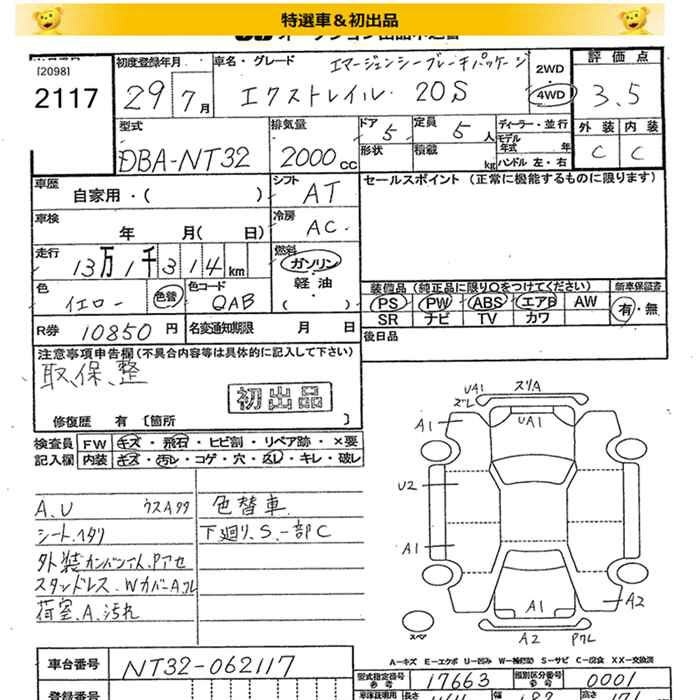 特選車&初出品
[2098]
2117
初度登録年月
29 7月
車名・グレード
エマージェンシーブレーキパッケージ
エクストレイル 20S
2WD
・
4WD
評価点
3.5
外装 内装
C C
型式
DBA-NT32
排気量
2000cc
ドア 5
定員 5人
形状
積載 kg
ディーラー・並行
モデル年式 年
ハンドル 左・右
車歴
自家用・( )
シフト
AT
セールスポイント (正常に機能するものに限ります)
車検
年 月( 日)
冷房
AC
走行
13万1千314km
燃料
ガソリン
・
軽油
( )
色
イエロー 色替
色コード
QAB
装備品 (純正品に限り○をつけてください)
PS PW ABS エアB AW
SR ナビ TV カワ
新車保証書
有・無
R券 10850円
名変通知期限 月 日
後日品
注意事項申告欄(不具合内容等は具体的に記入して下さい)
取、保、整
初出品
修復歴 有 〔箇所 〕
検査員 FW キズ・飛石・ヒビ割・リペア跡・×要
記入欄 内装 キズ・汚レ・コゲ・穴・スレ・キレ・破レ
A.U ウスAタタ
シート.ヘタリ
スタンドレス.WカバーA.スレ
荷室.A.汚れ
色替車
下廻り、S.一部C
UA1
ズレ
スリA
A1
UA1
A1
U2
A1
A1
A2
スペア
A2
A-キズ E-エクボ U-凹み W-補修跡 S-サビ C-腐食 XX-交換済
車台番号 NT32-062117
型式指定番号 参考 17663
類別区分番号 参考 0001
登録番号
長さ
幅
高さ